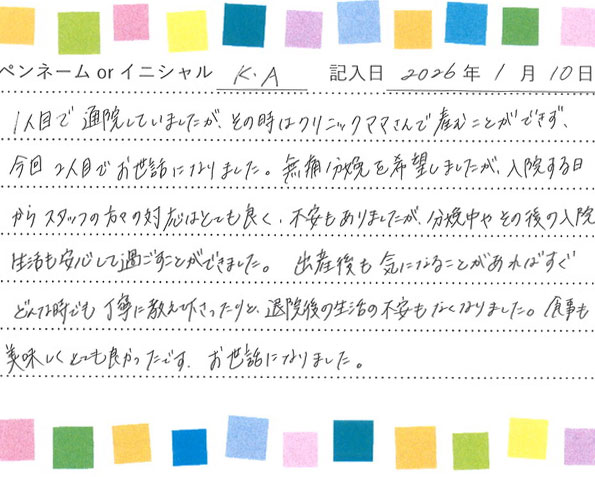 ペンネーム or イニシャル K・A 記入日 2026年 1月 10日
1人目で通院していましたが、その時はクリニックママさんで産むことができず、
今回2人目でお世話になりました。無痛分娩を希望しましたが、入院する日
からスタッフの方々の対応はとても良く、不安もありましたが、分娩中やその後の入院
生活も安心して過ごすことができました。出産後も気になることがあればすぐ
どんな時でも丁寧に教え下さったりと、退院後の生活の不安もなくなりました。食事も
美味しくとても良かったです。お世話になりました。